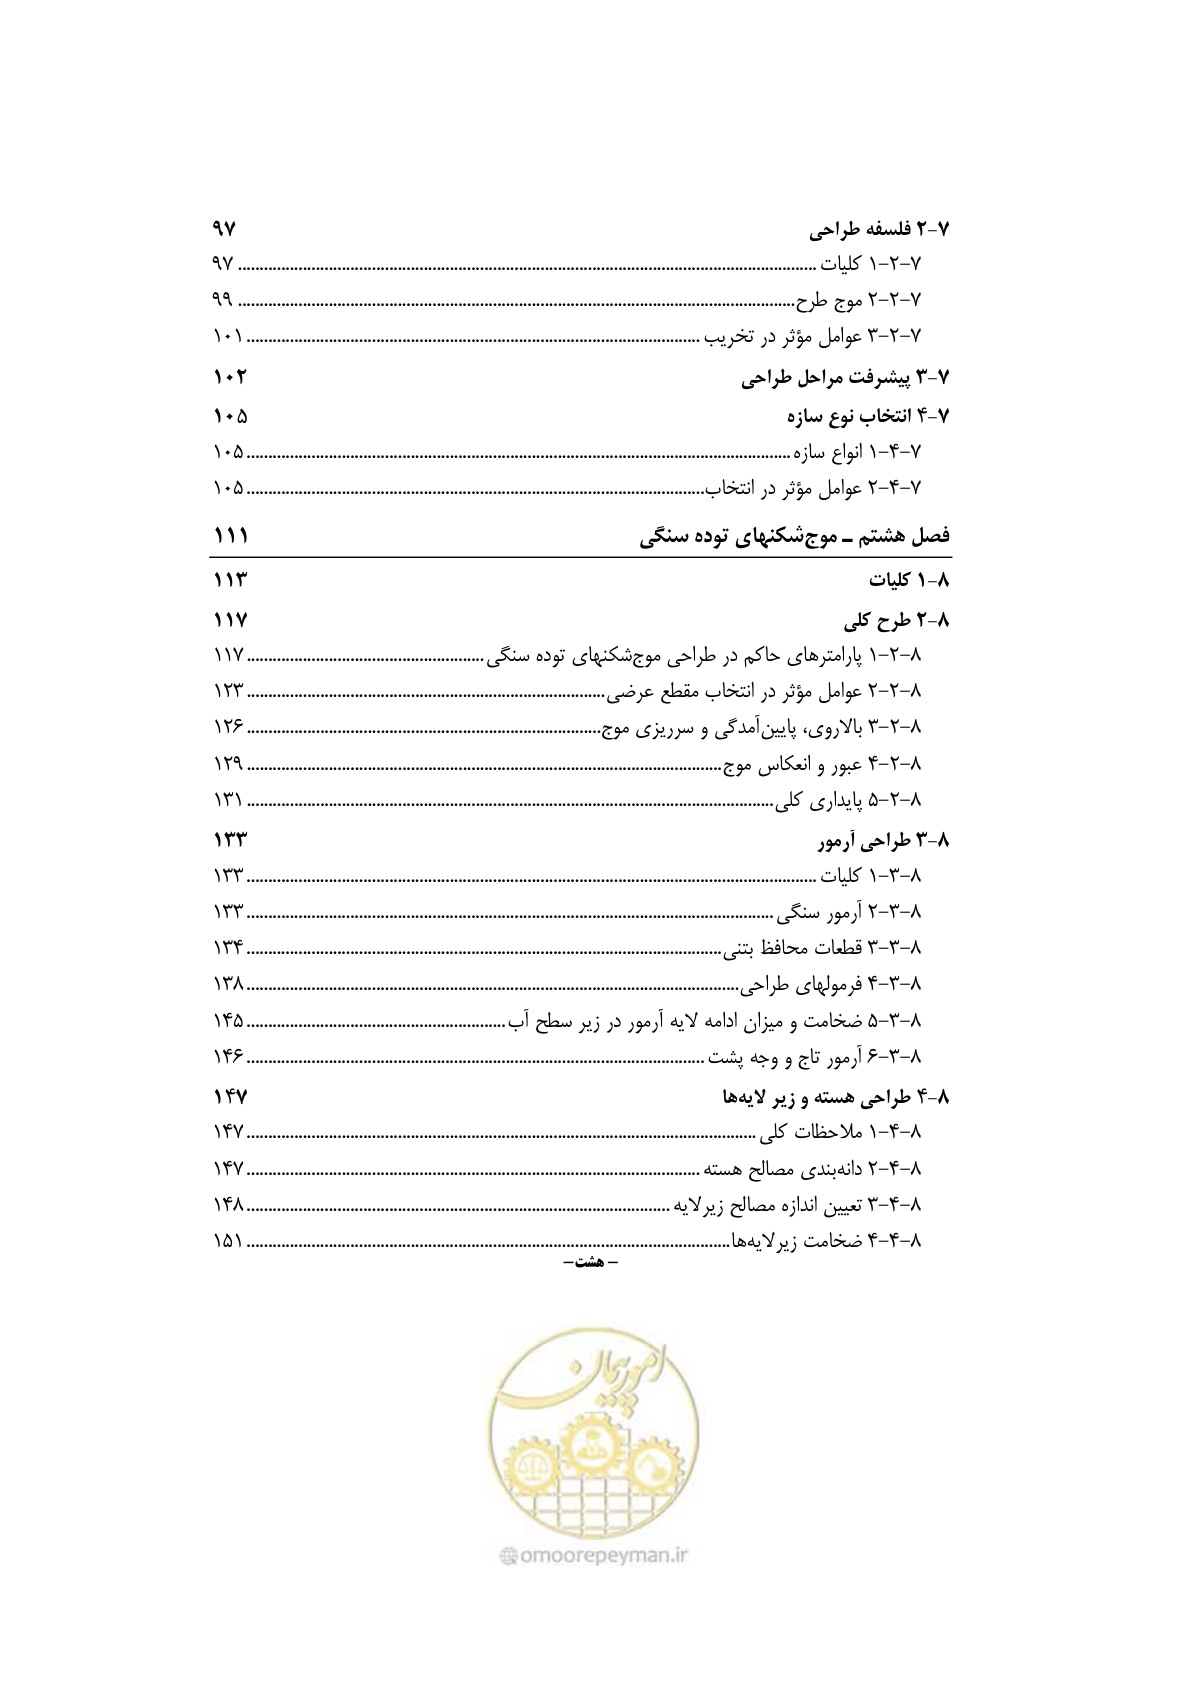 ۷-۲ فلسفه طراحی ۹۷
۷-۲-۱ کلیات ۹۷
۷-۲-۲ موج طرح ۹۹
۷-۲-۳ عوامل مؤثر در تخریب ۱۰۱
۷-۳ پیشرفت مراحل طراحی ۱۰۲
۷-۴ انتخاب نوع سازه ۱۰۵
۷-۴-۱ انواع سازه ۱۰۵
۷-۴-۲ عوامل مؤثر در انتخاب ۱۰۵
فصل هشتم ـ موج‌شکنهای توده سنگی ۱۱۱
۸-۱ کلیات ۱۱۳
۸-۲ طرح کلی ۱۱۷
۸-۲-۱ پارامترهای حاکم در طراحی موج‌شکنهای توده سنگی ۱۱۷
۸-۲-۲ عوامل مؤثر در انتخاب مقطع عرضی ۱۲۳
۸-۲-۳ بالاروی، پایین‌آمدگی و سرریزی موج ۱۲۶
۸-۲-۴ عبور و انعکاس موج ۱۲۹
۸-۲-۵ پایداری کلی ۱۳۱
۸-۳ طراحی آرمور ۱۳۳
۸-۳-۱ کلیات ۱۳۳
۸-۳-۲ آرمور سنگی ۱۳۳
۸-۳-۳ قطعات محافظ بتنی ۱۳۴
۸-۳-۴ فرمولهای طراحی ۱۳۸
۸-۳-۵ ضخامت و میزان ادامه لایه آرمور در زیر سطح آب ۱۴۵
۸-۳-۶ آرمور تاج و وجه پشت ۱۴۶
۸-۴ طراحی هسته و زیر لایه‌ها ۱۴۷
۸-۴-۱ ملاحظات کلی ۱۴۷
۸-۴-۲ دانه‌بندی مصالح هسته ۱۴۷
۸-۴-۳ تعیین اندازه مصالح زیرلایه ۱۴۸
۸-۴-۴ ضخامت زیرلایه‌ها ۱۵۱
- هشت-
امور پیمان
@omoorepeyman.ir